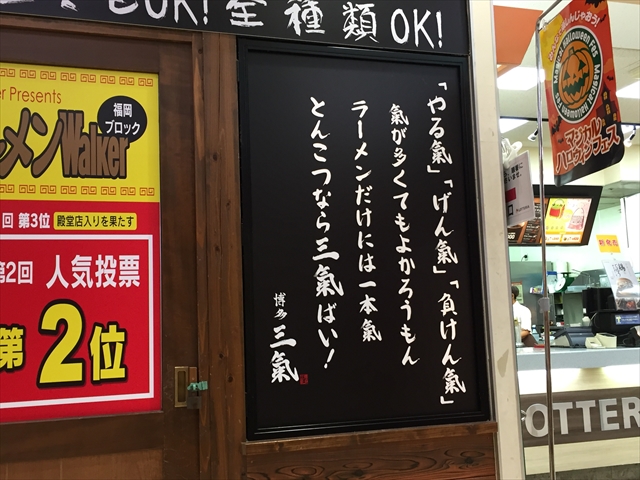 OK!全種類OK!
Presents
メンWalker
福岡
ブロック
回 第3位 殿堂店入りを果たす
第2回 人気投票
第2位
「やる氣」「げん氣」「負けん氣」
氣が多くてもよかろうもん
ラーメンだけには一本氣
とんこつなら三氣ばい!
博多 三氣
Magical Halloween Fes
マジカル
ハロウィンフェス
OTTER